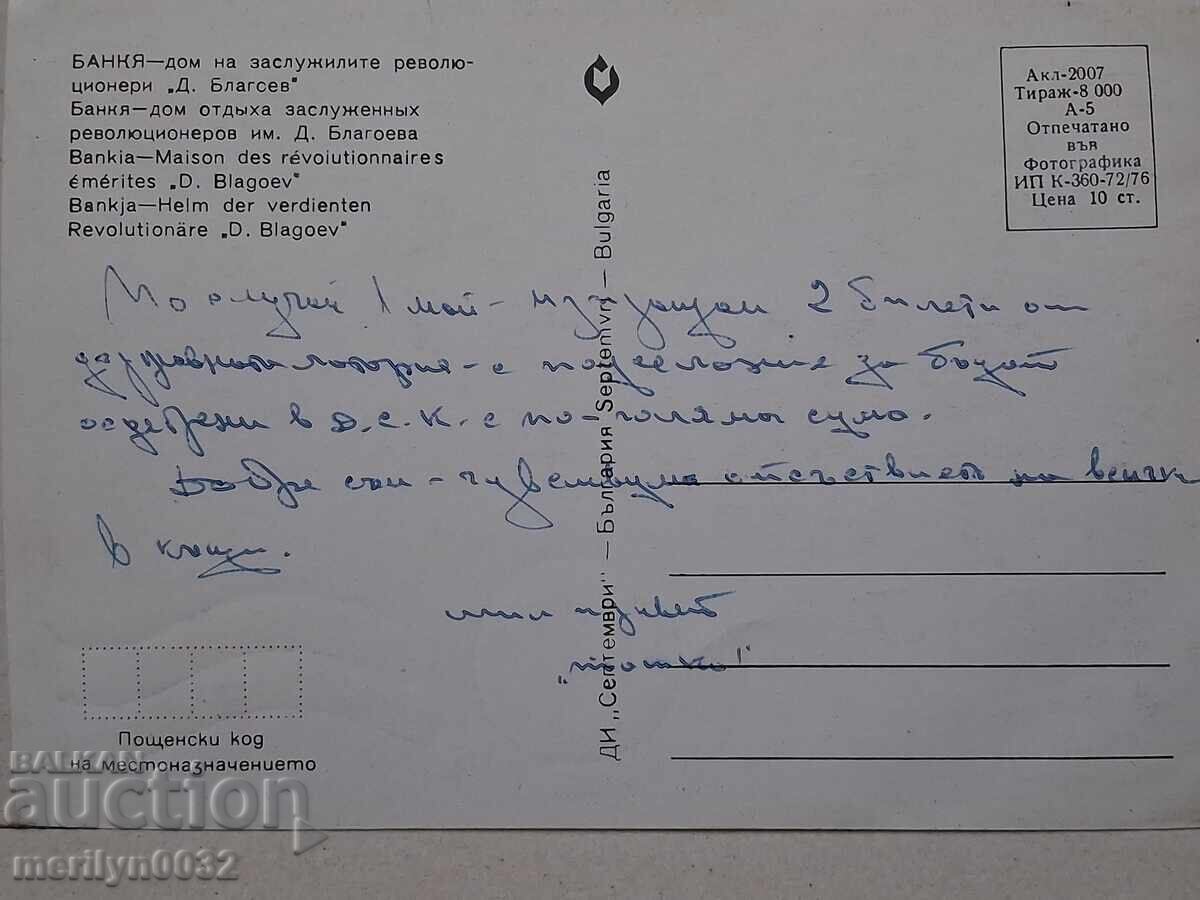 БАНКЯ—дом на заслужилите револю-
ционери „Д. Благсев"
Банкя—дом отдыха заслуженных
революционеров им. Д. Благоева
Bankia—Maison des révoiutionnaires
émérites „D. Blagoev"
Bankja—Helm der verdienten
Revolutionäre „D. Blagoev"
Акл-2007
Тираж-8 000
А-5
Отпечатано
във
Фотографика
ИП К-360-72/76
Цена 10 ст.
ДИ „Септември" — България Septemvri — Bulgaria
По случай 1 май - изпращам 2 билета от
държавната лотария - с пожелание за бъдат
осребрени в Д.С.К. с по-голяма сума.
Добре съм - чувствува отсъствието на всички
в къщи.
мил привет
"Тошко"
Пощенски код
на местоназначението
BALKAN
auction
merilyn0032